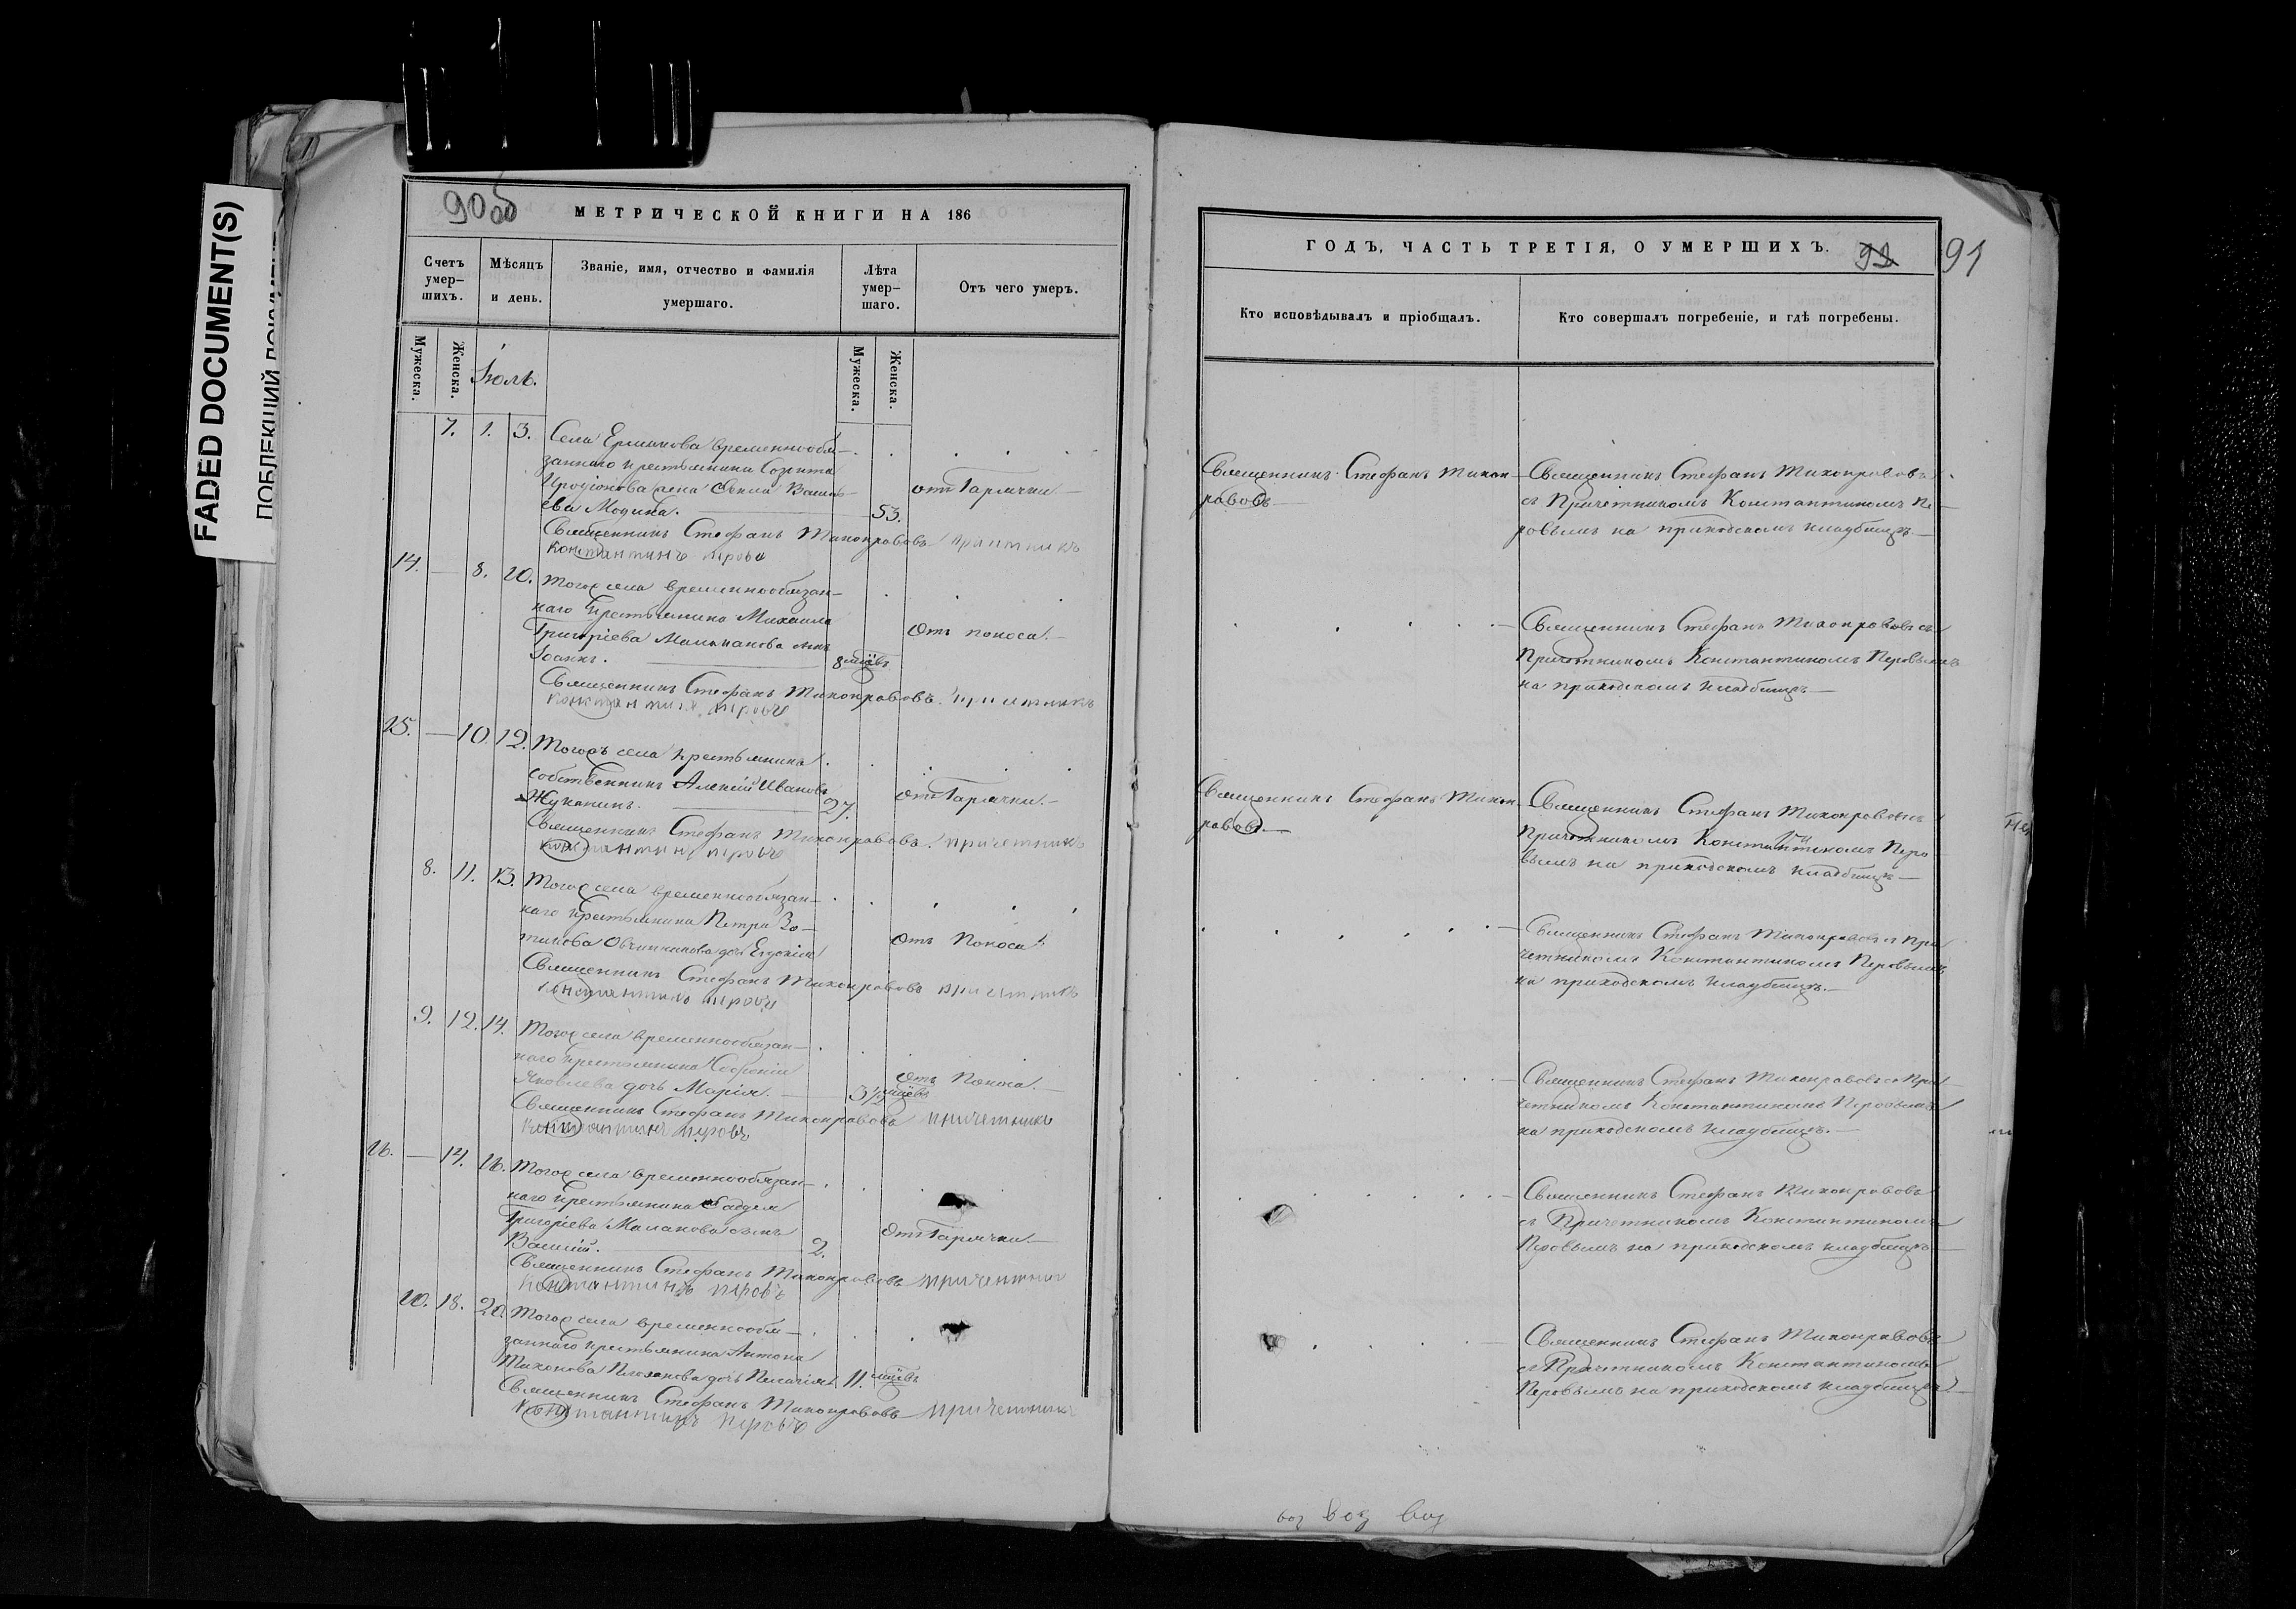 FADED DOCUMENT(S)
90 об
МЕТРИЧЕСКОЙ КНИГИ НА 186
Счетъ умер-
шихъ.
Мѣсяцъ
и день.
Званіе, имя, отчество и фамилія
умершаго.
Лѣта
умер-
шаго.
Отъ чего умеръ.
Мужеска.
Женска.
Іюль.
Мужеска.
Женска.
7. 1. 3. Села Ермакова временнообя-
заннаго крестьянина
жена
ева Модина. 53.
отъ Горячки
Священникъ Стефанъ Тихонравовъ
Константинъ Перовъ
14. — 8. 10. Тогожъ села временнообязан-
наго крестьянина Михаила
Григоріева сынъ
Іоаннъ. 8 мцовъ
Отъ поноса.
Священникъ Стефанъ Тихонравовъ. Причетникъ
Константинъ Перовъ
15. — 10. 12. Тогожъ села крестьянинъ
собственникъ Алексій Ивановъ
Жуканинъ. 27.
отъ Горячки.
Священникъ Стефанъ Тихонравовъ. Причетникъ
Константинъ Перовъ
8. 11. 13. Тогожъ села временнообязан-
наго крестьянина Петра Зо-
тикова Овчинникова дочь Евдокія
Отъ Поноса.
Священникъ Стефанъ Тихонравовъ Причетникъ
Константинъ Перовъ
9. 12. 14. Тогожъ села временнообязан-
наго крестьянина Софронія
Яковлева дочь Марія. 3½ мцовъ
Отъ Поноса.
Священникъ Стефанъ Тихонравовъ Причетникъ
Константинъ Перовъ
16. — 14. 16. Тогожъ села временнообязан-
наго крестьянина Фаддея
Григоріева Малакова сынъ
Василій. 2.
Отъ Горячки.
Священникъ Стефанъ Тихонравовъ Причетникъ
Константинъ Перовъ
10. 18. 20. Тогожъ села временнообя-
заннаго крестьянина Антона
Тихонова дочь Пелагія 11. мцовъ
Священникъ Стефанъ Тихонравовъ Причетникъ
Константинъ Перовъ
ГОДЪ, ЧАСТЬ ТРЕТІЯ, О УМЕРШИХЪ.
91
Кто исповѣдывалъ и пріобщалъ.
Кто совершалъ погребеніе, и гдѣ погребены.
Священникъ Стефанъ Тихон-
равовъ
Священникъ Стефанъ Тихонравовъ
съ Причетникомъ Константиномъ Пе-
ровымъ на приходскомъ кладбищѣ
Священникъ Стефанъ Тихонравовъ съ
Причетникомъ Константиномъ Перовымъ
на приходскомъ кладбищѣ
Священникъ Стефанъ Тихон-
равовъ
Священникъ Стефанъ Тихонравовъ съ
Причетникомъ Константиномъ Перо-
вымъ на приходскомъ кладбищѣ
Священникъ Стефанъ Тихонравовъ съ При-
четникомъ Константиномъ Перовымъ
на приходскомъ кладбищѣ.
Священникъ Стефанъ Тихонравовъ съ При-
четникомъ Константиномъ Перовымъ
на приходскомъ кладбищѣ.
Священникъ Стефанъ Тихонравовъ
съ Причетникомъ Константиномъ
Перовымъ на приходскомъ кладбищѣ
Священникъ Стефанъ Тихонравовъ
съ Причетникомъ Константиномъ
Перовымъ на приходскомъ кладбищѣ